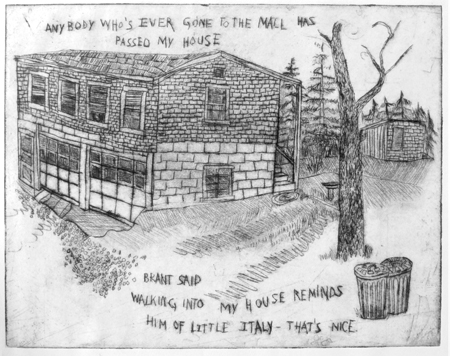 ANYBODY WHO'S EVER GONE TO THE MALL HAS
PASSED MY HOUSE
BRANT SAID
WALKING INTO MY HOUSE REMINDS
HIM OF LITTLE ITALY - THAT'S NICE.